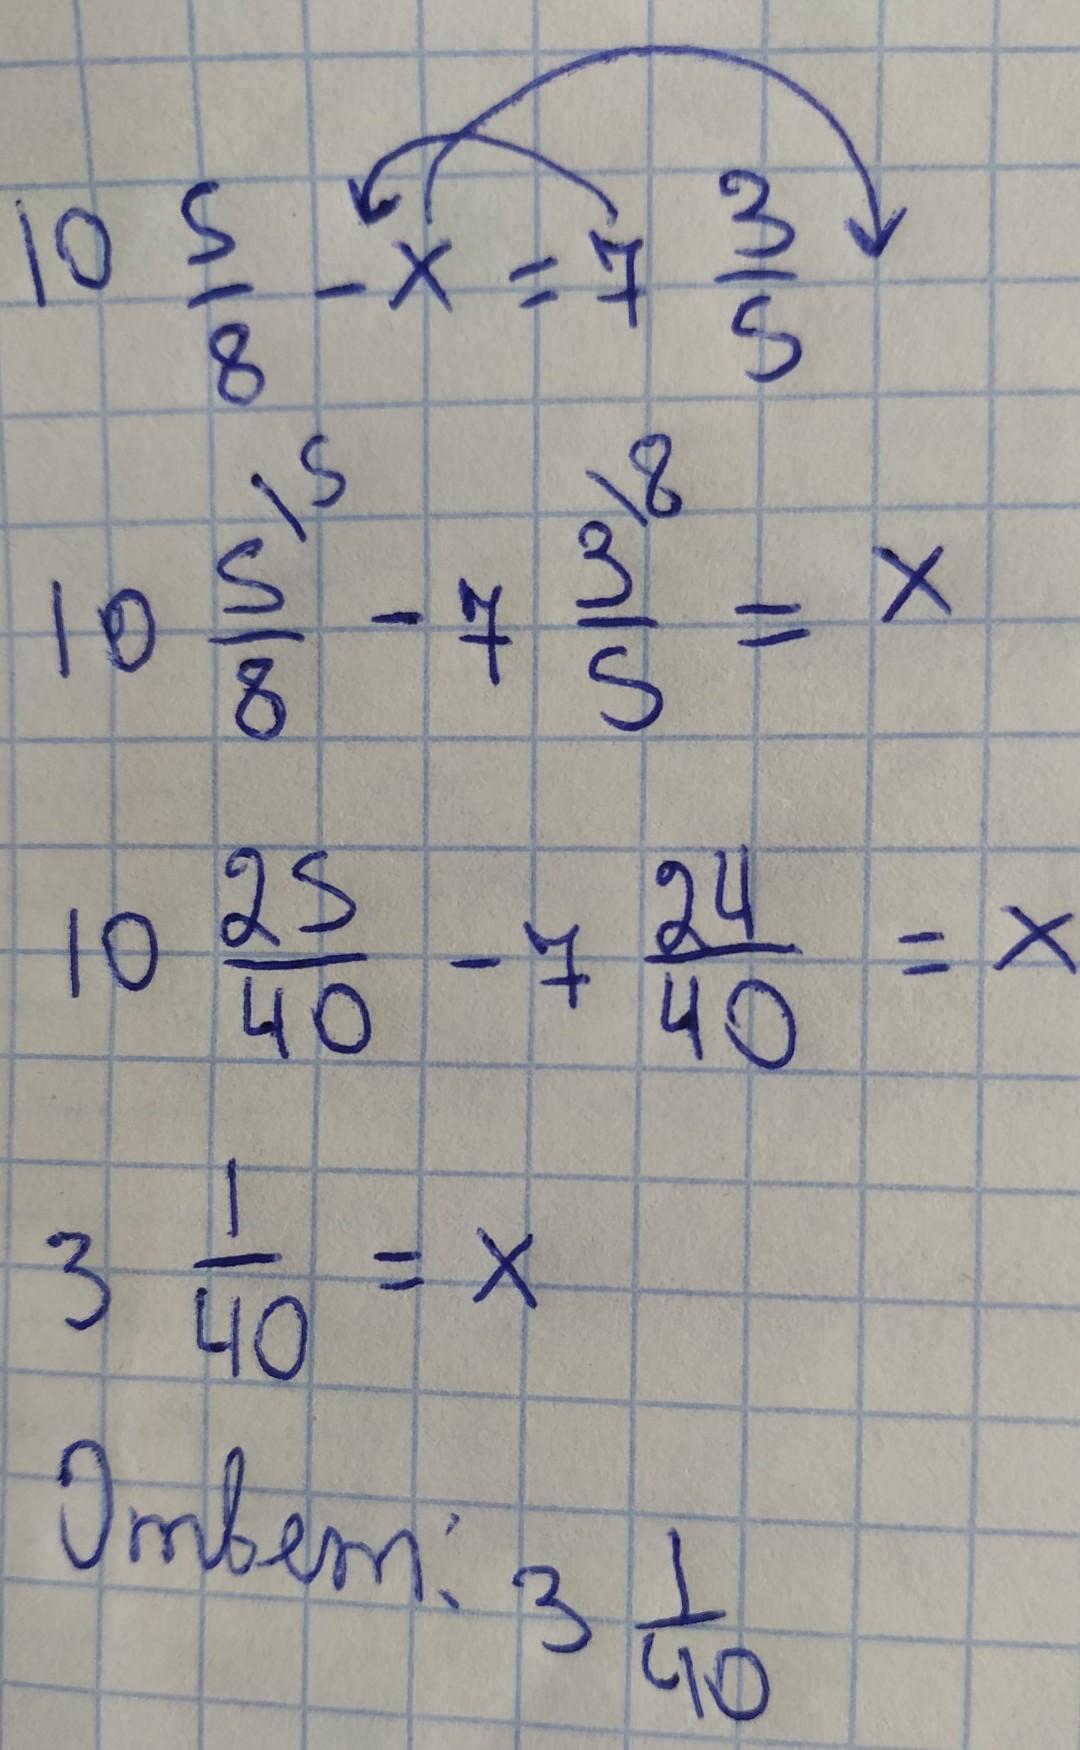 10 5/8 - x = 7 3/5
10 5/8 \5 - 7 3/5 \8 = x
10 25/40 - 7 24/40 = x
3 1/40 = x
Ответ: 3 1/40